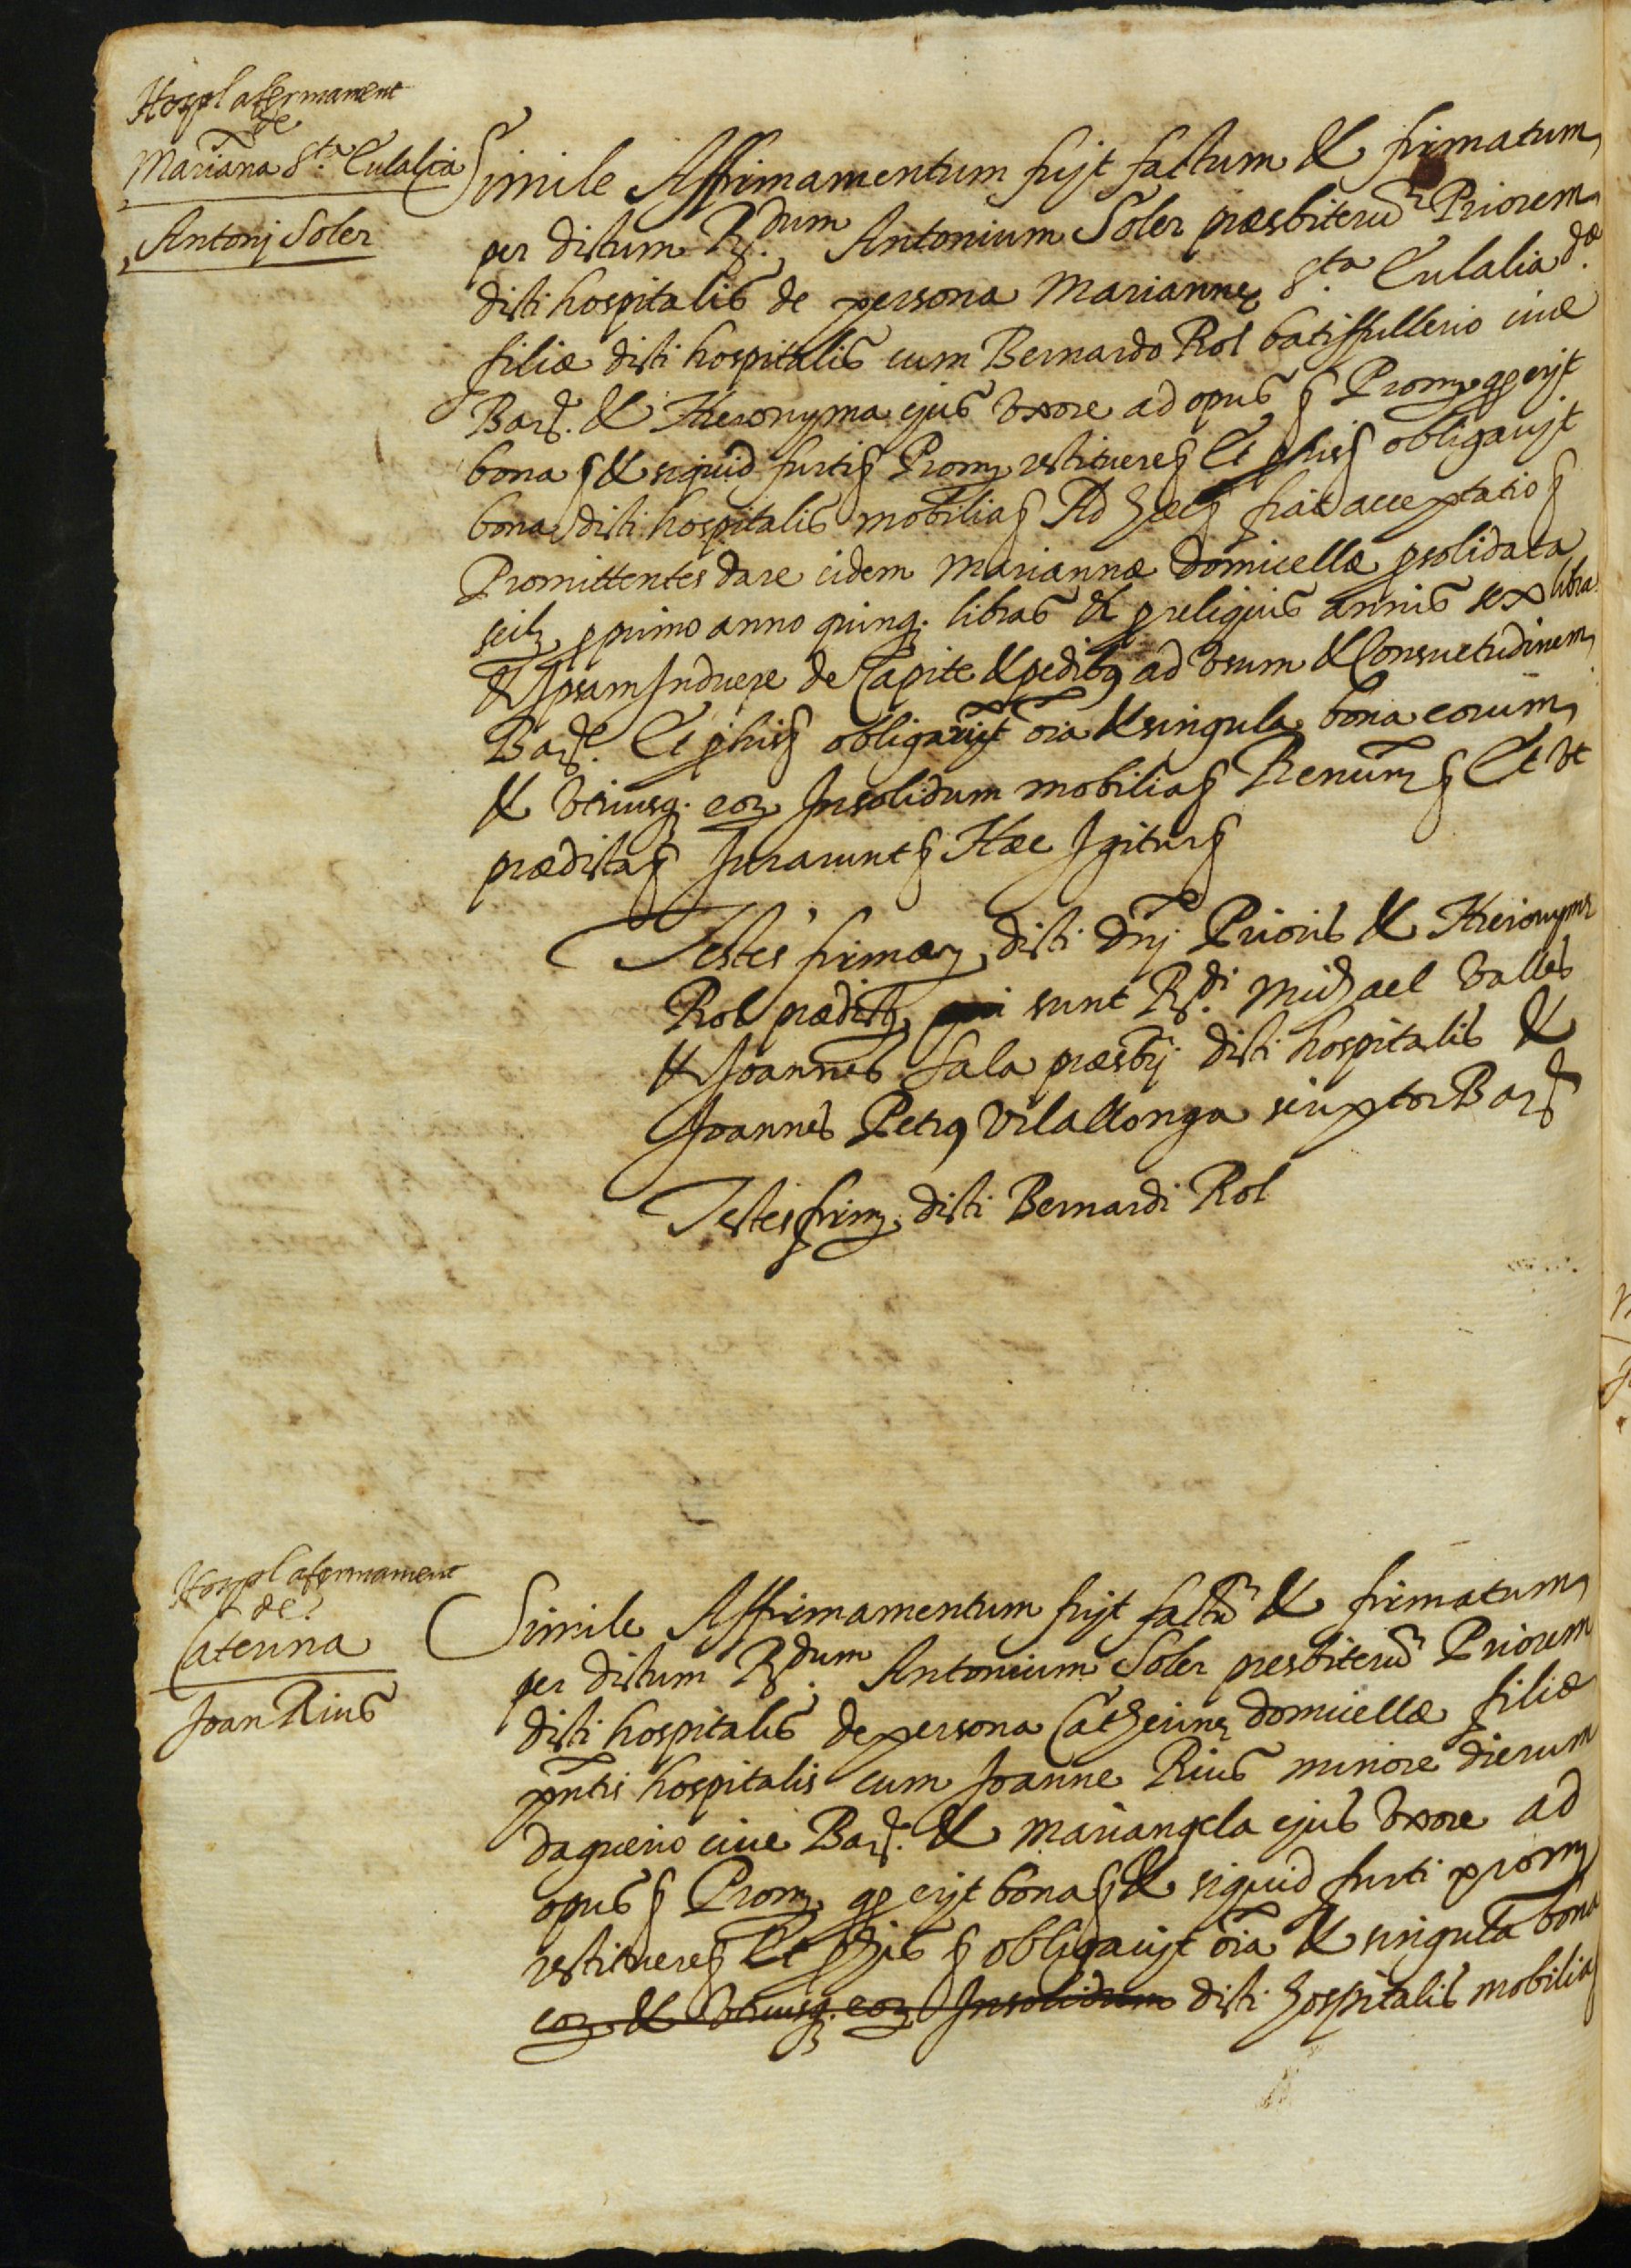 Hospl afermament
de
Mariana Sta. Eulalia
Antonj Soler
Simile Affirmamentum fujt factum & firmatum
per dictum Rdum. Antonium Soler præsbiterũ Priorem
dicti hospitalis de persona Mariannę Sta. Eulalia dæ.
filiæ dicti hospitalis cum Bernardo Rol batiffullerio cive
Bar. & Hieronyma ejus vxore ad opus § Prom erjt
bona § & siquid furti§ Prom restituere§ Et p his§ obligavjt
bona dicti hospitalis mobilia§ Ad hæc§ fiat acceptatio§
Promittentes dare eidem Mariannæ domicellæ p solidata
scilz p primo anno quinq. libras & p reliquis annis sex libra
& Ipsam Induere de Capite & pedibꝰ ad vsum & Consuetudinem
Bar. Et p his§ obligavjt oĩa & singula bona eorum
& vtriusq. eoꝝ Insolidum mobilia§ Renum§ Et vt
prædicta§ Jurarunt§ Hæc Igitur§
Testes firmæ dicti Dnj Prioris & Hieronymę
Rol prædict sunt Rdi. Michael Valles
& Joannes Sala præsbrj dicti hospitalis &
Joannes Petrꝰ Vilallonga scriptor Bar
Testes firmę dicti Bernardi Rol
Hospl afermament
de
Caterina
Joan Rius
Simile Affirmamentum fujt factũ & firmatum
per dictum Rdum. Antonium Soler presbiterũ Priorem
dicti hospitalis de persona Catherinę domicellæ filiæ
pntis hospitalis cum Joanne Rius minore dierum
daguerio cive Bar. & Mariangela ejus vxore ad
opus § Prom erjt bona§ & siquid furti prom
restituere§ Et p his § obligavjt oĩa & singula bona
eoꝝ & vtriusq. eoꝝ Insolidum dicti hospitalis mobilia§